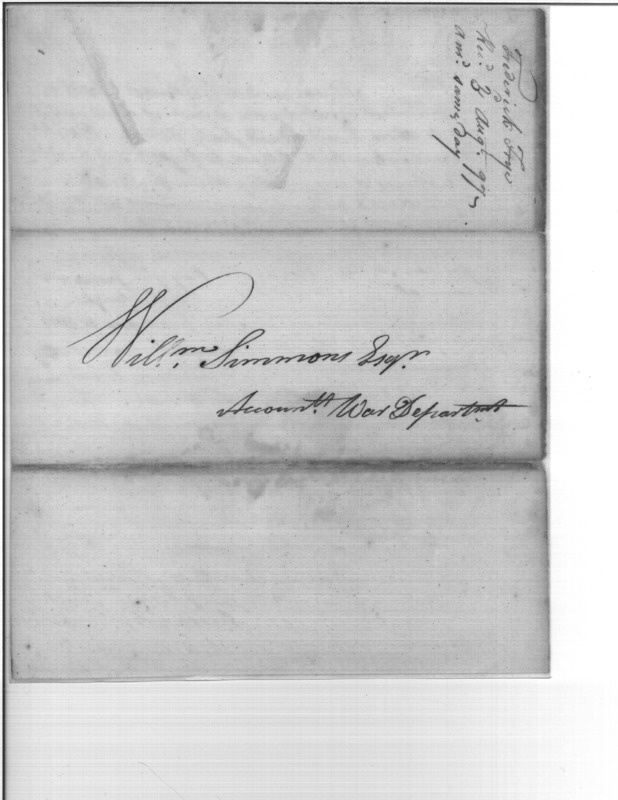 Frederick Frye
Rec.d 3.d Aug.t 97
ans.d same day
Will.m Simmons Esq.r
Account.tt War Departm.t